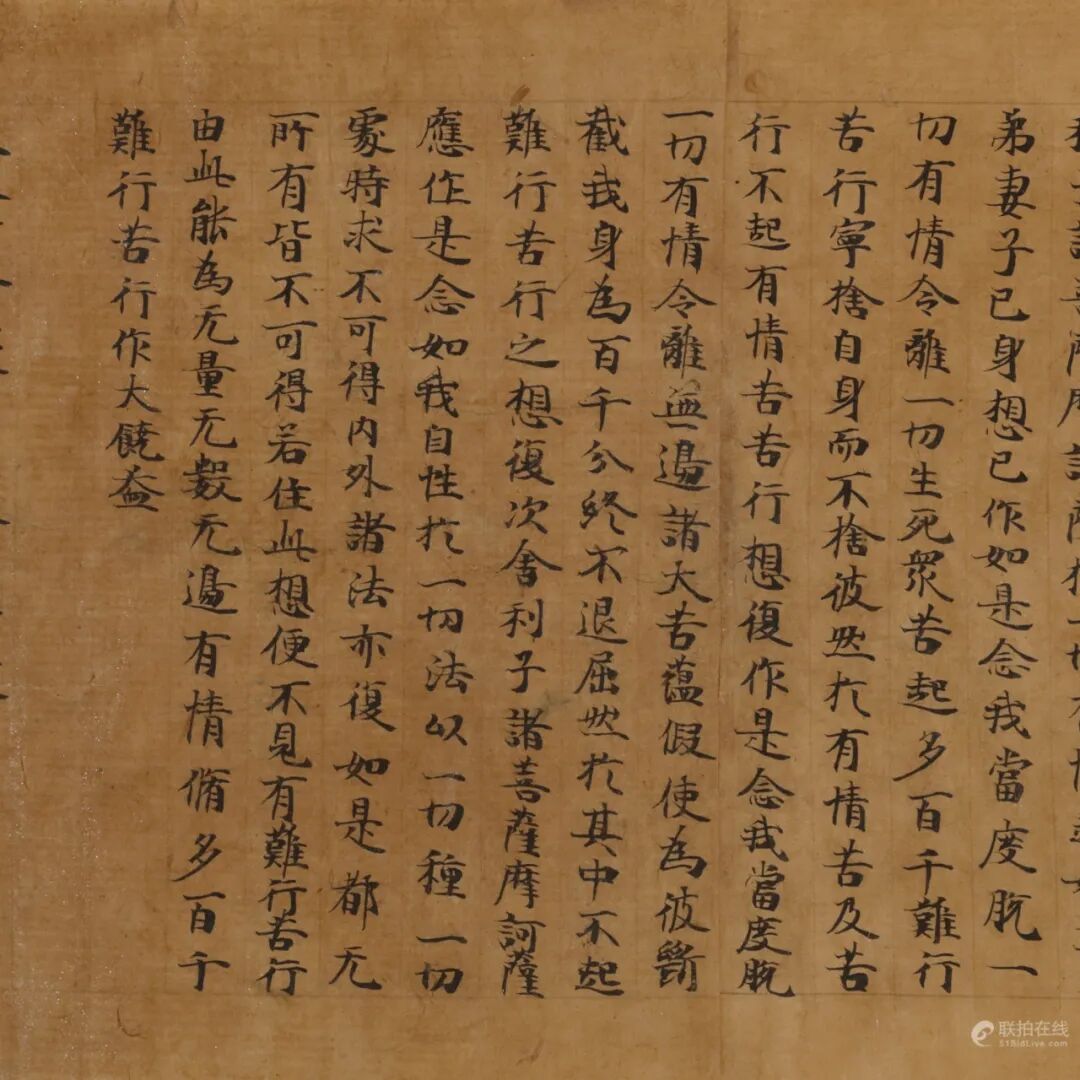 諸菩薩摩訶薩於一切有情
弟妻子己身想已作如是念我當度脫一
切有情令離一切生死眾苦起多百千難行
苦行寧捨自身而不捨彼然於有情苦及苦
行不起有情苦苦行想復作是念我當度脫
一切有情令離無邊諸大苦蘊假使為彼斷
截我身為百千分終不退屈然於其中不起
難行苦行之想復次舍利子諸菩薩摩訶薩
應作是念如我自性於一切法以一切種一切
處時求不可得內外諸法亦復如是都无
所有皆不可得若住此想便不見有難行苦行
由此能為无量无數无邊有情脩多百千
難行苦行作大饒益
联拍在线
51BidLive.com